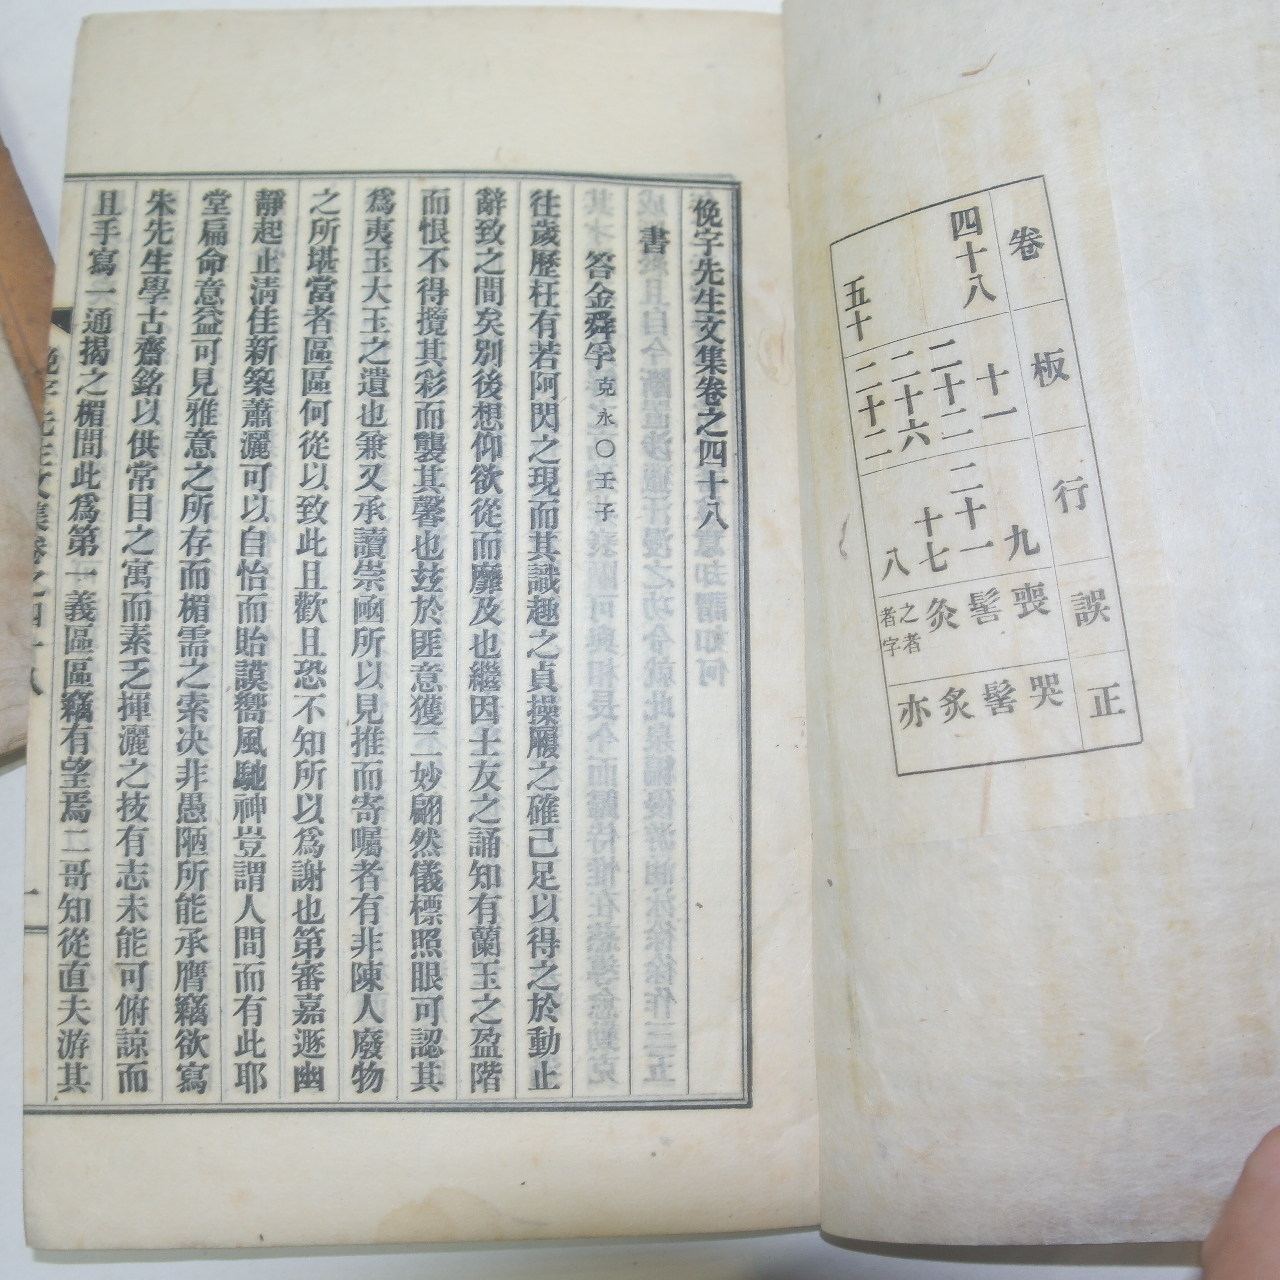 卷 板 行 誤 正
四十八 十一 九 喪 哭
二十二 二十一 髺 髻
二十六 十七 灸 炙
五十 二十二 八 之者者字 亦
俛宇先生文集卷之四十八
書
答金舜宇 克永○壬子
往歲歷枉有若阿閃之現而其識趣之貞操履之確己足以得之於動止
辭致之間矣別後想仰欲從而靡及也繼因士友之誦知有蘭玉之盈階
而恨不得攬其彩而襲其馨也玆於匪意獲二妙翩然儀標照眼可認其
爲夷玉大玉之遺也兼又承讀崇凾所以見推而寄囑者有非陳人廢物
之所堪當者區區何從以致此且歡且恐不知所以爲謝也第審嘉遯幽
靜起止淸佳新築蕭灑可以自怡而貽謨嚮風馳神豈謂人間而有此耶
堂扁命意益可見雅意之所存而楣需之索决非愚陋所能承膺竊欲寫
朱先生學古齋銘以供常目之寓而素乏揮灑之技有志未能可俯諒而
且手寫一通揭之楣間此爲第一義區區竊有望焉二哥知從直夫游其
俛宇先生文集卷之四十八
一